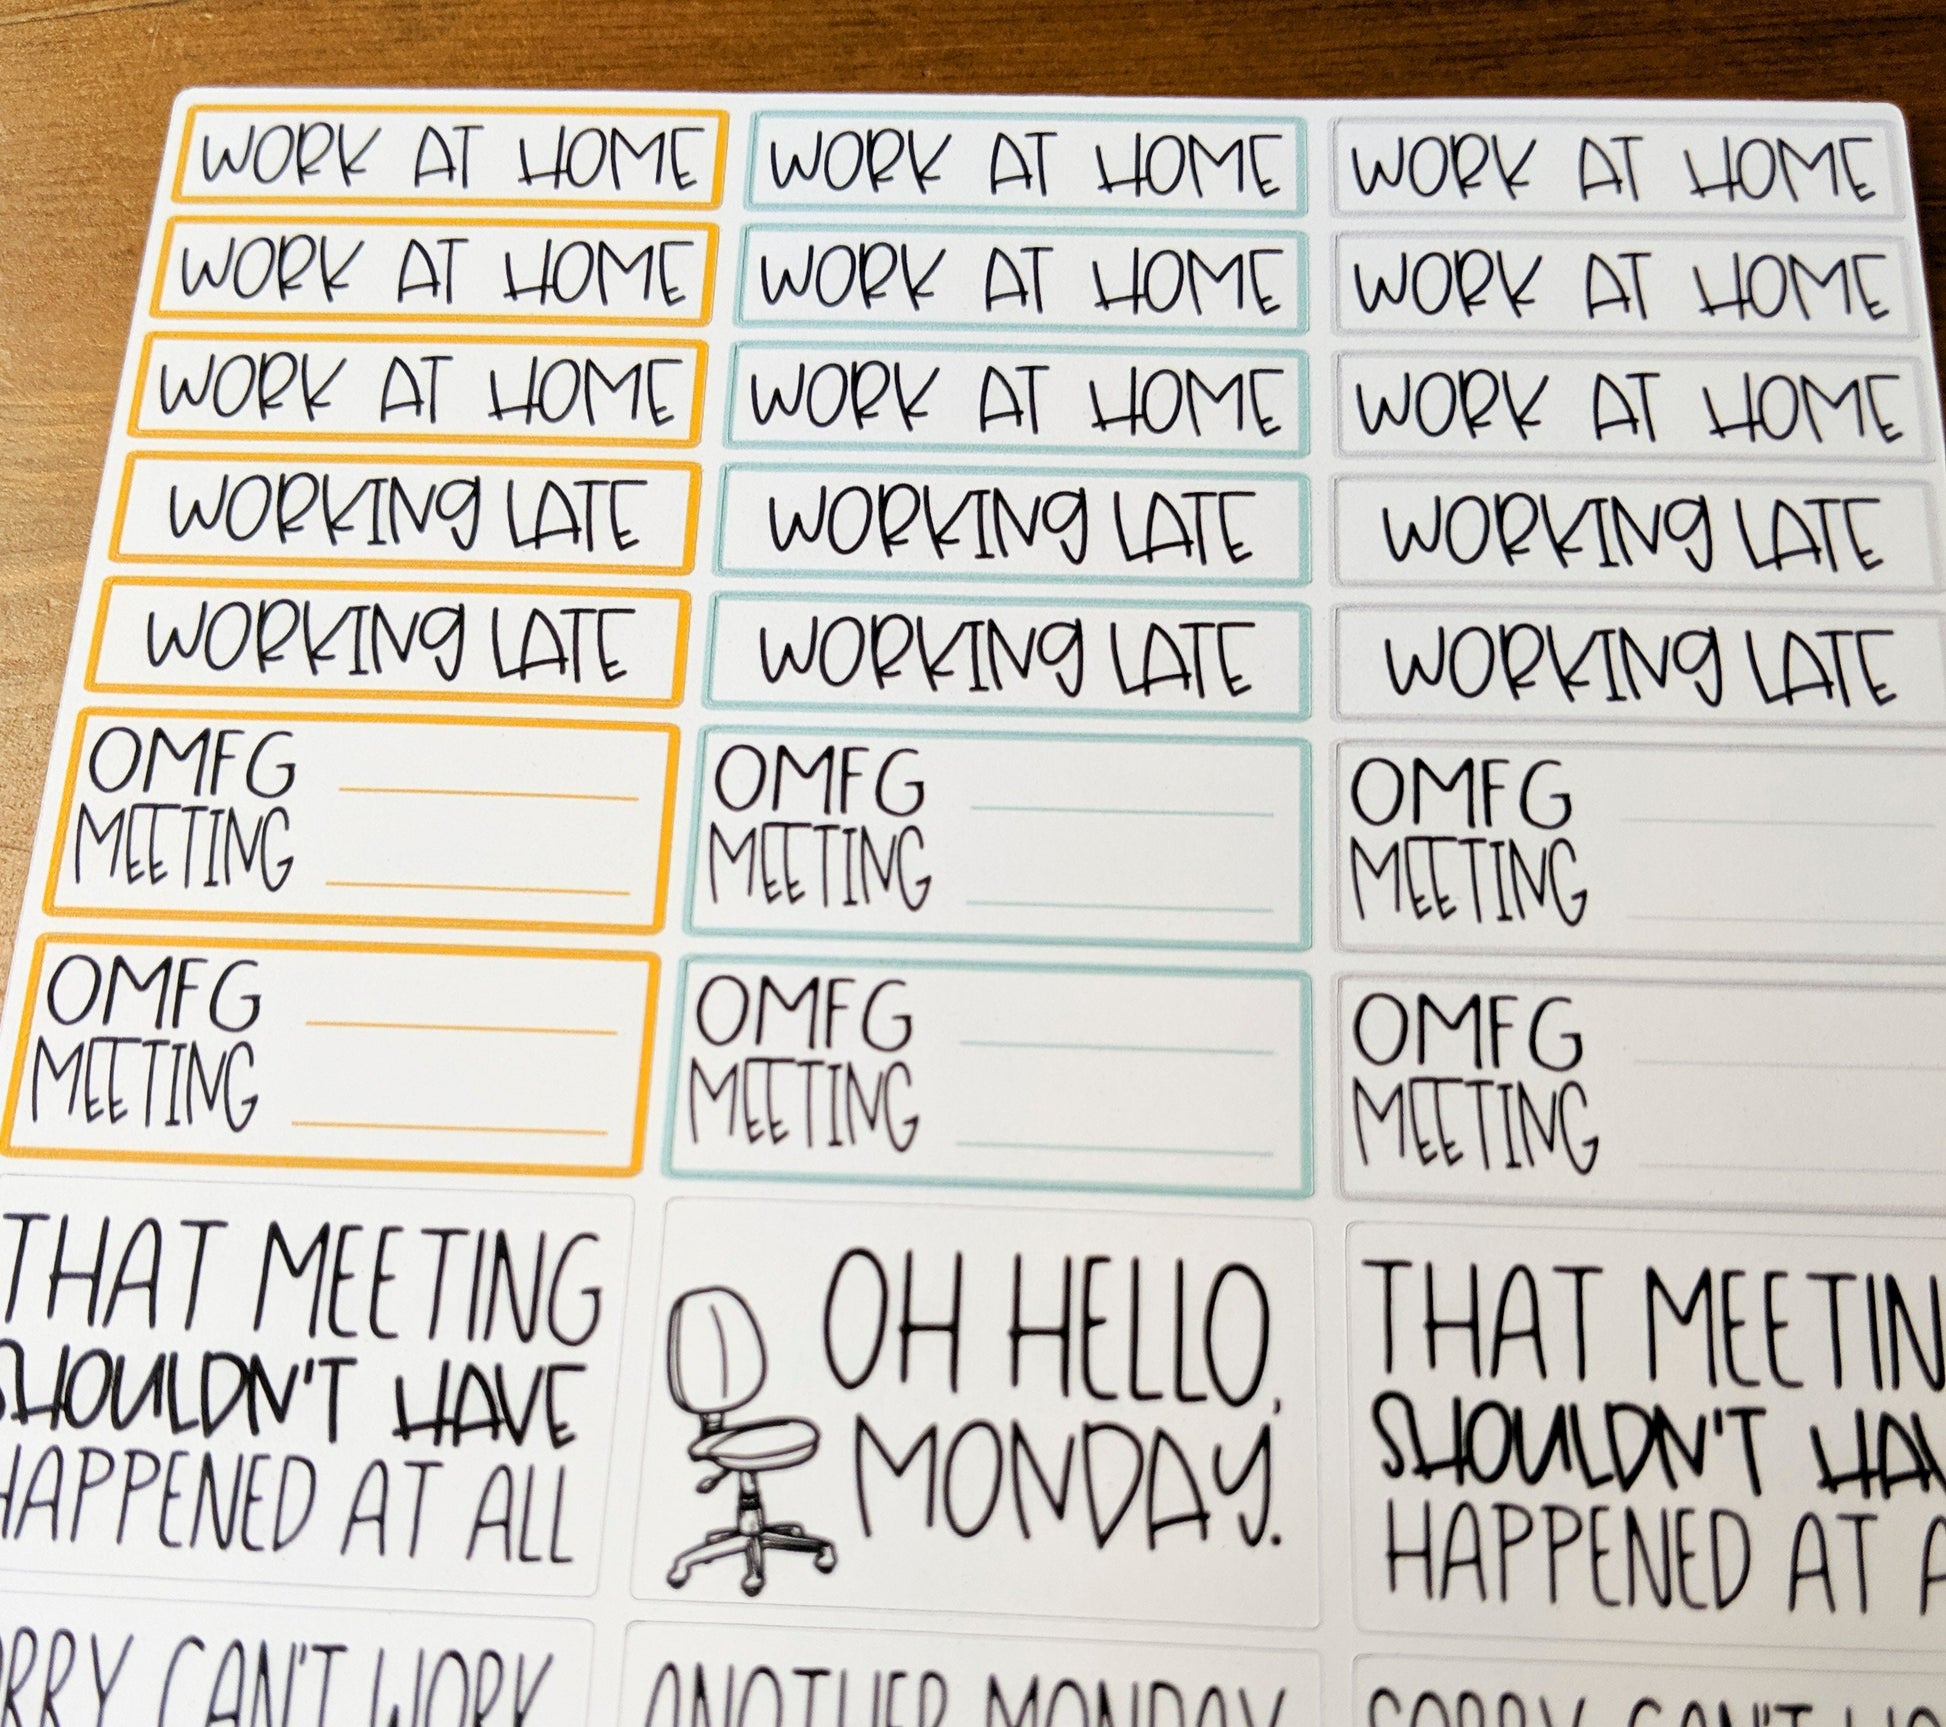 WORK AT HOME
WORK AT HOME
WORK AT HOME
WORK AT HOME
WORK AT HOME
WORK AT HOME
WORK AT HOME
WORK AT HOME
WORK AT HOME
WORKING LATE
WORKING LATE
WORKING LATE
WORKING LATE
WORKING LATE
WORKING LATE
OMFG
MEETING
OMFG
MEETING
OMFG
MEETING
OMFG
MEETING
OMFG
MEETING
OMFG
MEETING
THAT MEETING
SHOULDN'T HAVE
HAPPENED AT ALL
OH HELLO,
MONDAY.
THAT MEETIN
SHOULDN'T HAV
HAPPENED AT A
ORRY CAN'T WORK
ANOTHER MONDAY
SORRY CAN'T WO